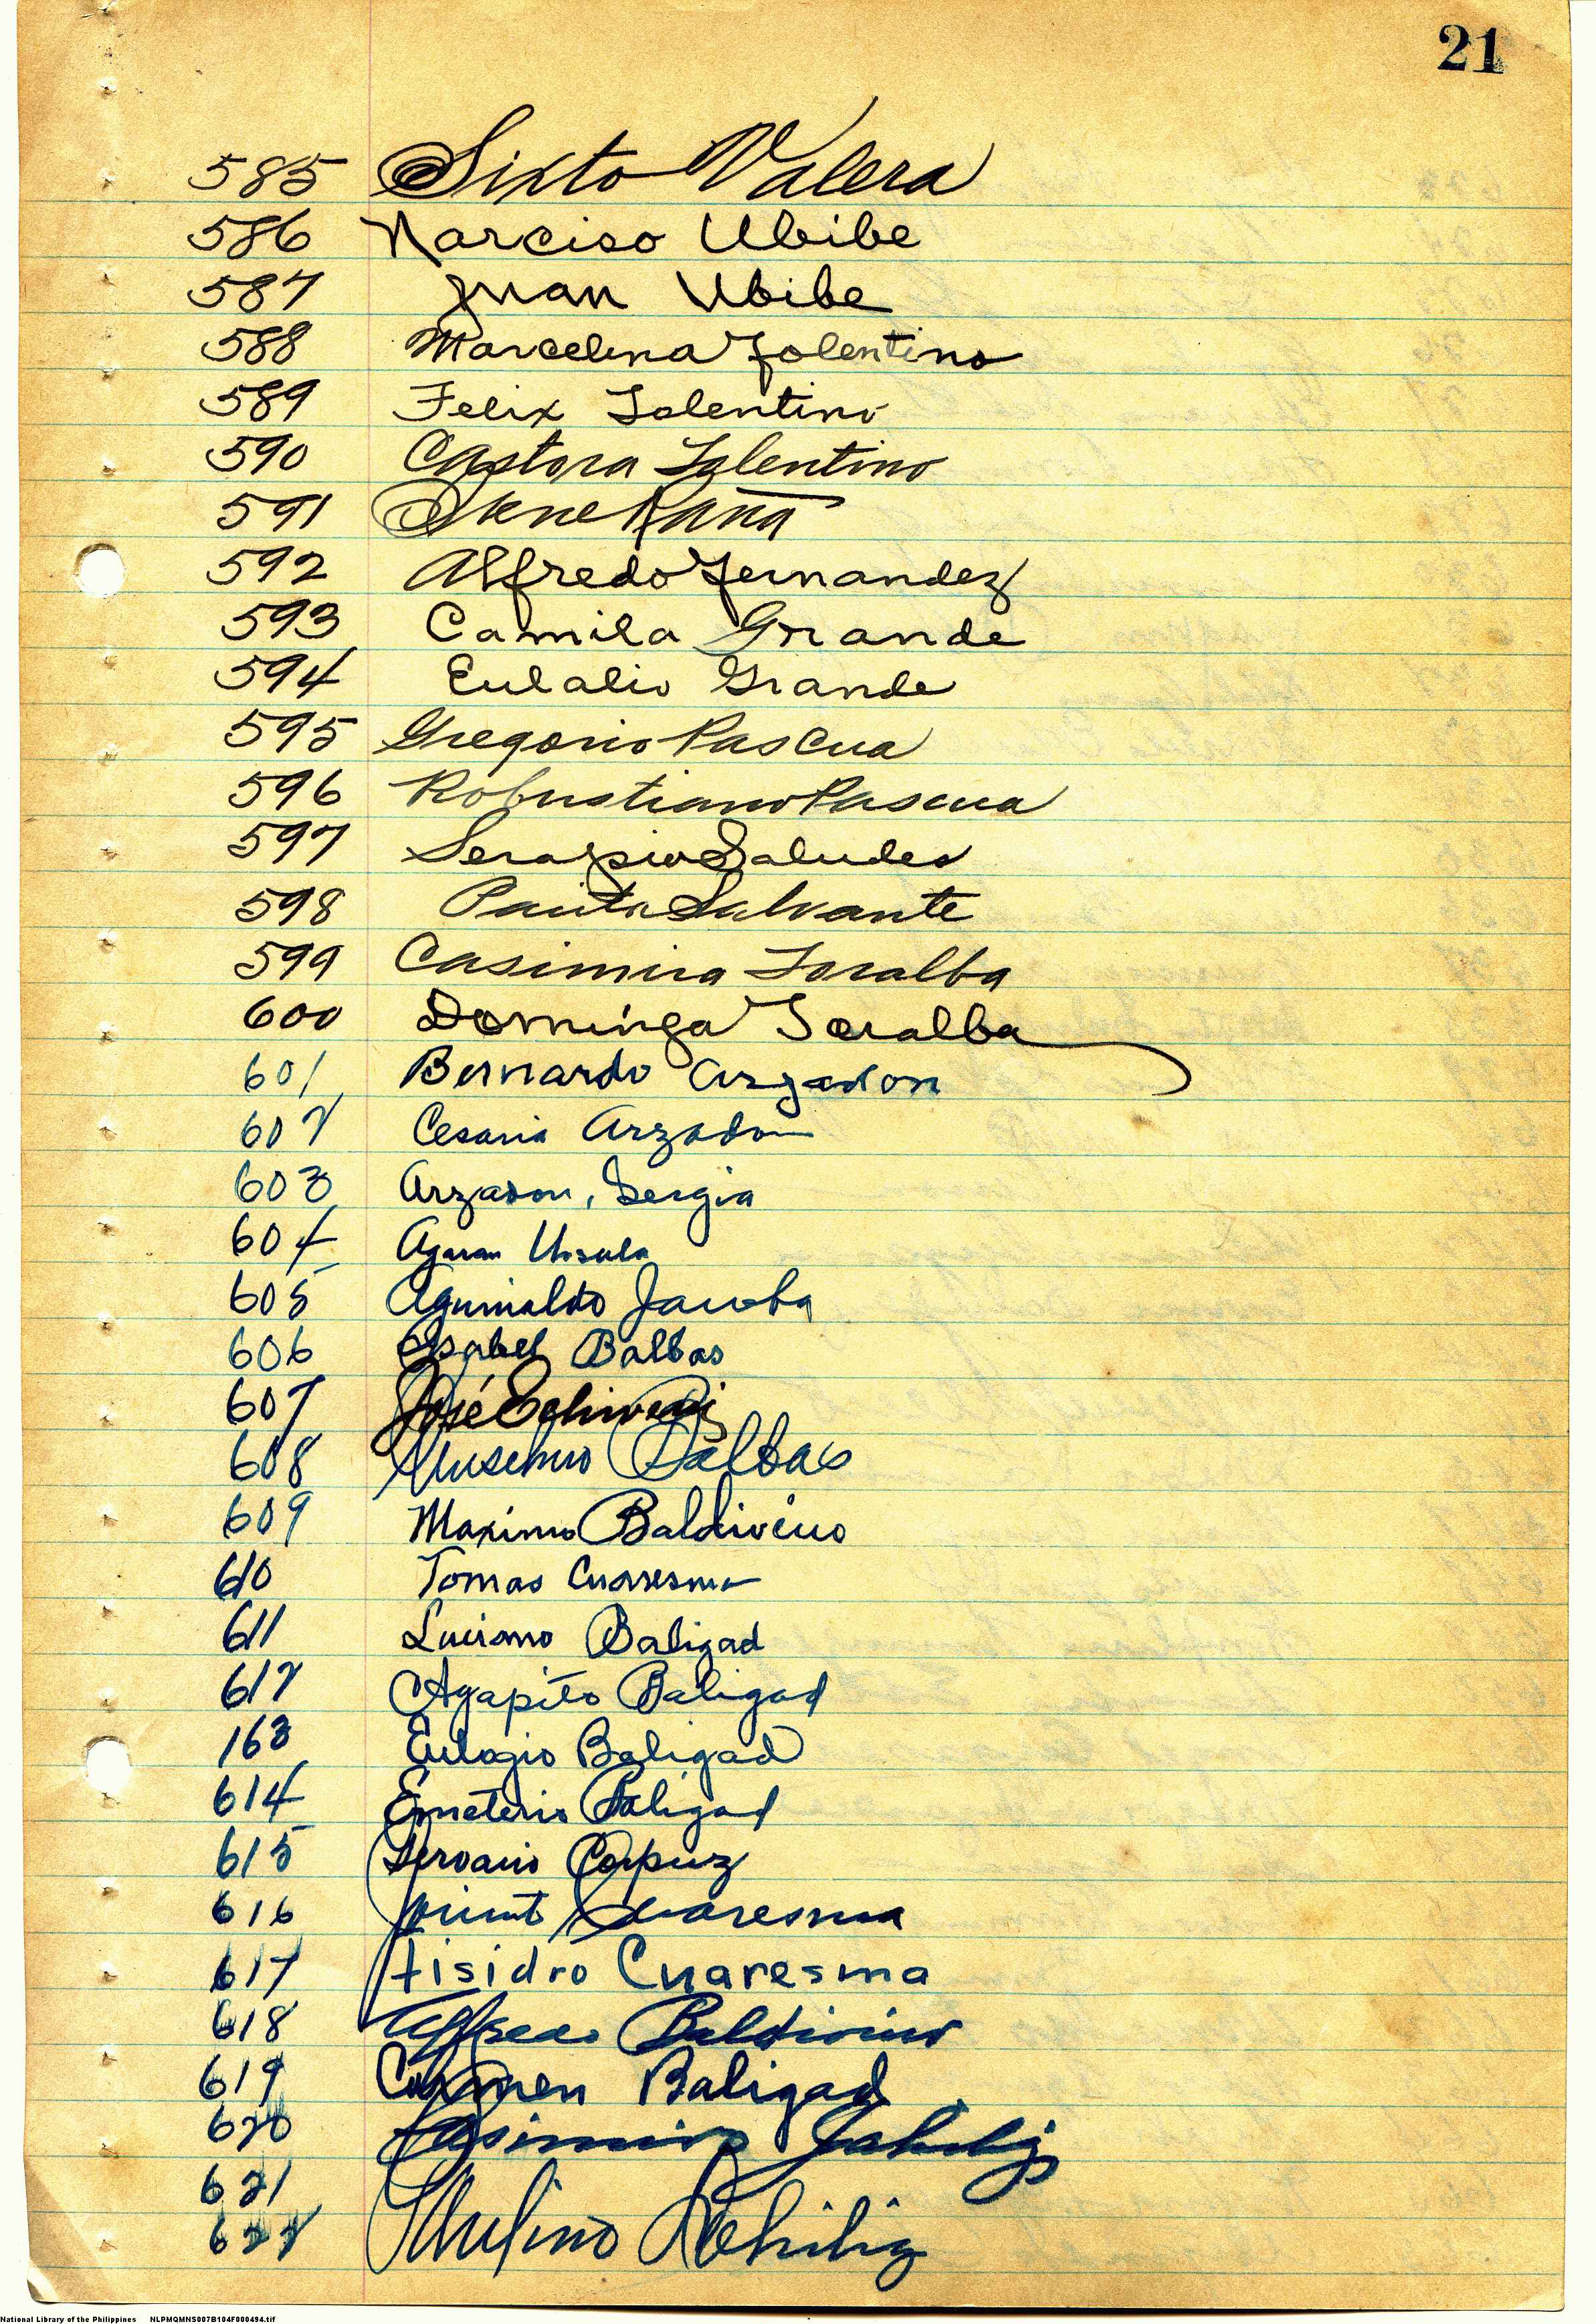 21
585 Sixto Valera
586 Narciso Ubibe
587 Juan Ubibe
588 Marcelina Tolentino
589 Felix Tolentino
590 Castora Tolentino
591
592 Alfredo Fernandez
593 Camila Grande
594 Eulalio Grande
595 Gregorio Pascua
596 Robustiano Pascua
597 Serapio Saludes
598 Salvante
599 Casimira Toralba
600 Dominga Toralba
601 Bernardo Arzadon
602 Cesaria Arzadon
603 Arzadon, Sergia
604 Ursula
605 Aguinaldo Jacoba
606 Isabel Balbas
607 José
608 Balbas
609 Maximo Baldivino
610 Tomas Cuaresma
611 Luciano Baligad
612 Agapito Baligad
163 Eulogio Baligad
614 Emeterio Baligad
615 Corpuz
616 Cuaresma
617 Cuaresma
618 Alfredo Baldivino
619 Carmen Baligad
620 Casimiro
621
622
National Library of the Philippines NLPMQMNS007B104F000494.tif